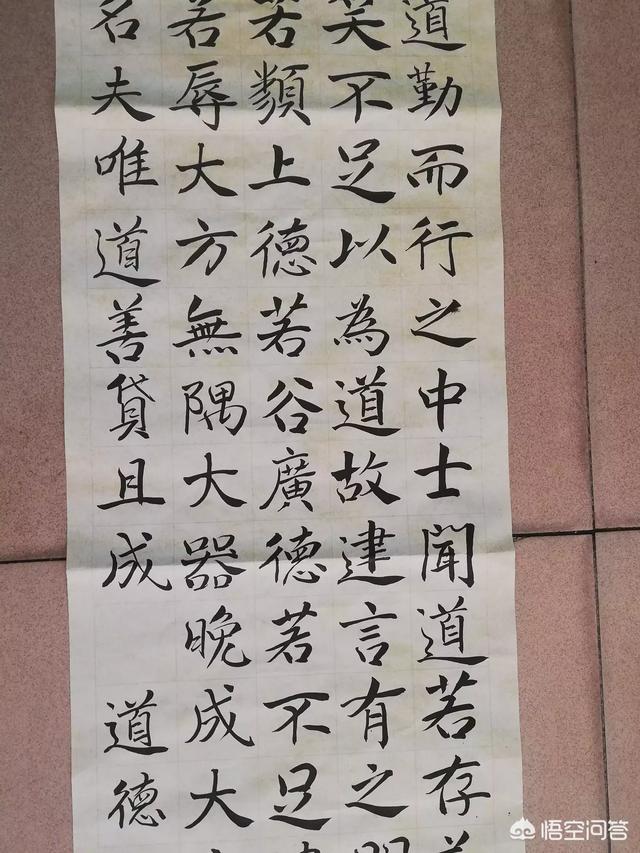 道勤而行之中士聞道若存
笑不足以為道故建言有之
若類上德若谷廣德若不足
若辱大方無隅大器晚成大
名夫唯道善貸且成 道德
悟空问答